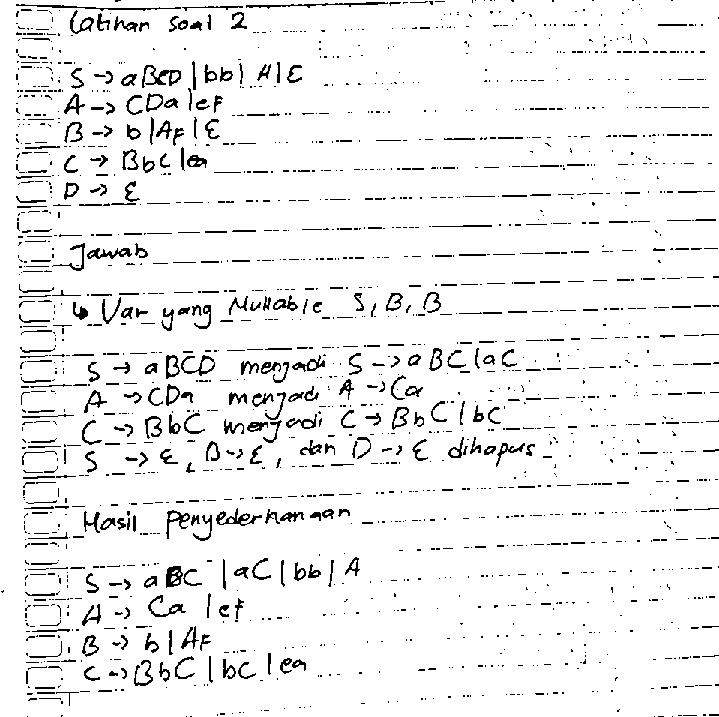 Latihan Soal 2
S → aBCD | bb | A | ε
A → CDa | ef
B → b | Af | ε
C → BbC | ea
D → ε
Jawab
↳ Var yang Nullable S, B, B
S → aBCD menjadi S → aBC | aC
A → CDa menjadi A → Ca
C → BbC menjadi C → BbC | bC
S → ε, B → ε, dan D → ε dihapus
Hasil Penyederhanaan
S → aBC | aC | bb | A
A → Ca | ef
B → b | Af
C → BbC | bC | ea